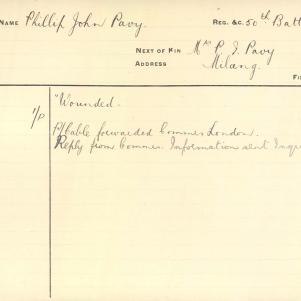 NAME Phillip John Pavy. REG. &C. 50th Batt
NEXT OF KIN Mrs R J Pavy
ADDRESS Milang.
FI
"Wounded.
1/P P/Cable forwarded Commrs London.
Reply from Commrs. Information sent Inqu